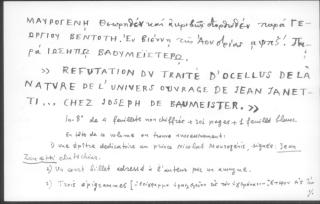 ΜΑΥΡΟΓΕΝΗ Θεωρηθὲν καὶ ἀκριβῶς διορθωθὲν παρὰ ΓΕ-
ΩΡΓΙΟΥ ΒΕΝΤΟΤΗ. Ἐν Βιέννῃ τῆς Ἀουστρίας αψπζ! Πα-
ρὰ ΙΩΣΗΠΩ ΒΑΟΥΜΕΙΣΤΕΡΩ.
» REFUTATION DU TRAITÉ D'OCELLUS DE LA
NATURE DE L'UNIVERS OUVRAGE DE JEAN JANET-
TI... CHEZ JOSEPH DE BAUMEISTER. »
In-8° de 4 feuillets non chiffrés + 301 pages + 1 feuillet blanc.
En tête de ce volume on trouve successivement:
1) une épître dédicatoire au prince Nicolas Maurogénis, signée: Jean
Zanetti
2) Un court billet adressé à l'auteur par un anonyme.
3) Trois épigrammes